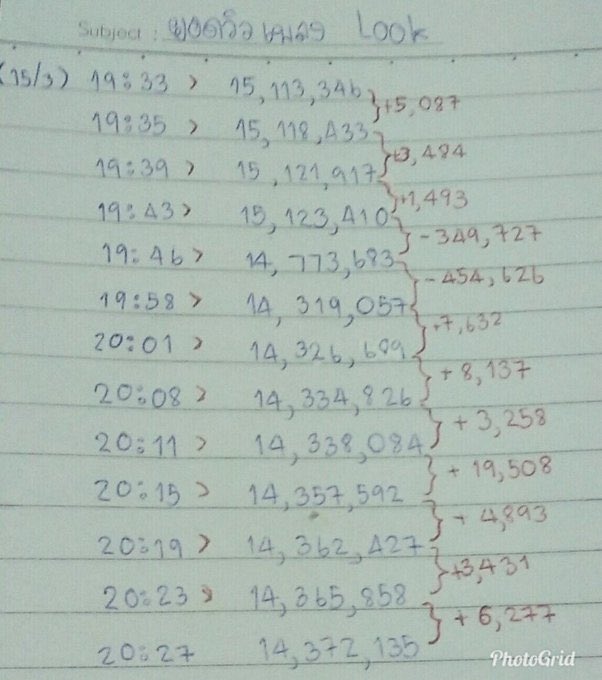 Subject : ยอดวิวเพลง Look
(15/3) 19:33 > 15,113,346
+5,087
19:35 > 15,118,433
+3,484
19:39 > 15,121,917
+1,493
19:43 > 15,123,410
-349,727
19:46 > 14,773,683
-454,626
19:58 > 14,319,057
+7,632
20:01 > 14,326,689
+8,137
20:08 > 14,334,826
+3,258
20:11 > 14,338,084
+19,508
20:15 > 14,357,592
+4,893
20:19 > 14,362,427
+3,431
20:23 > 14,365,858
+6,277
20:27 14,372,135
PhotoGrid